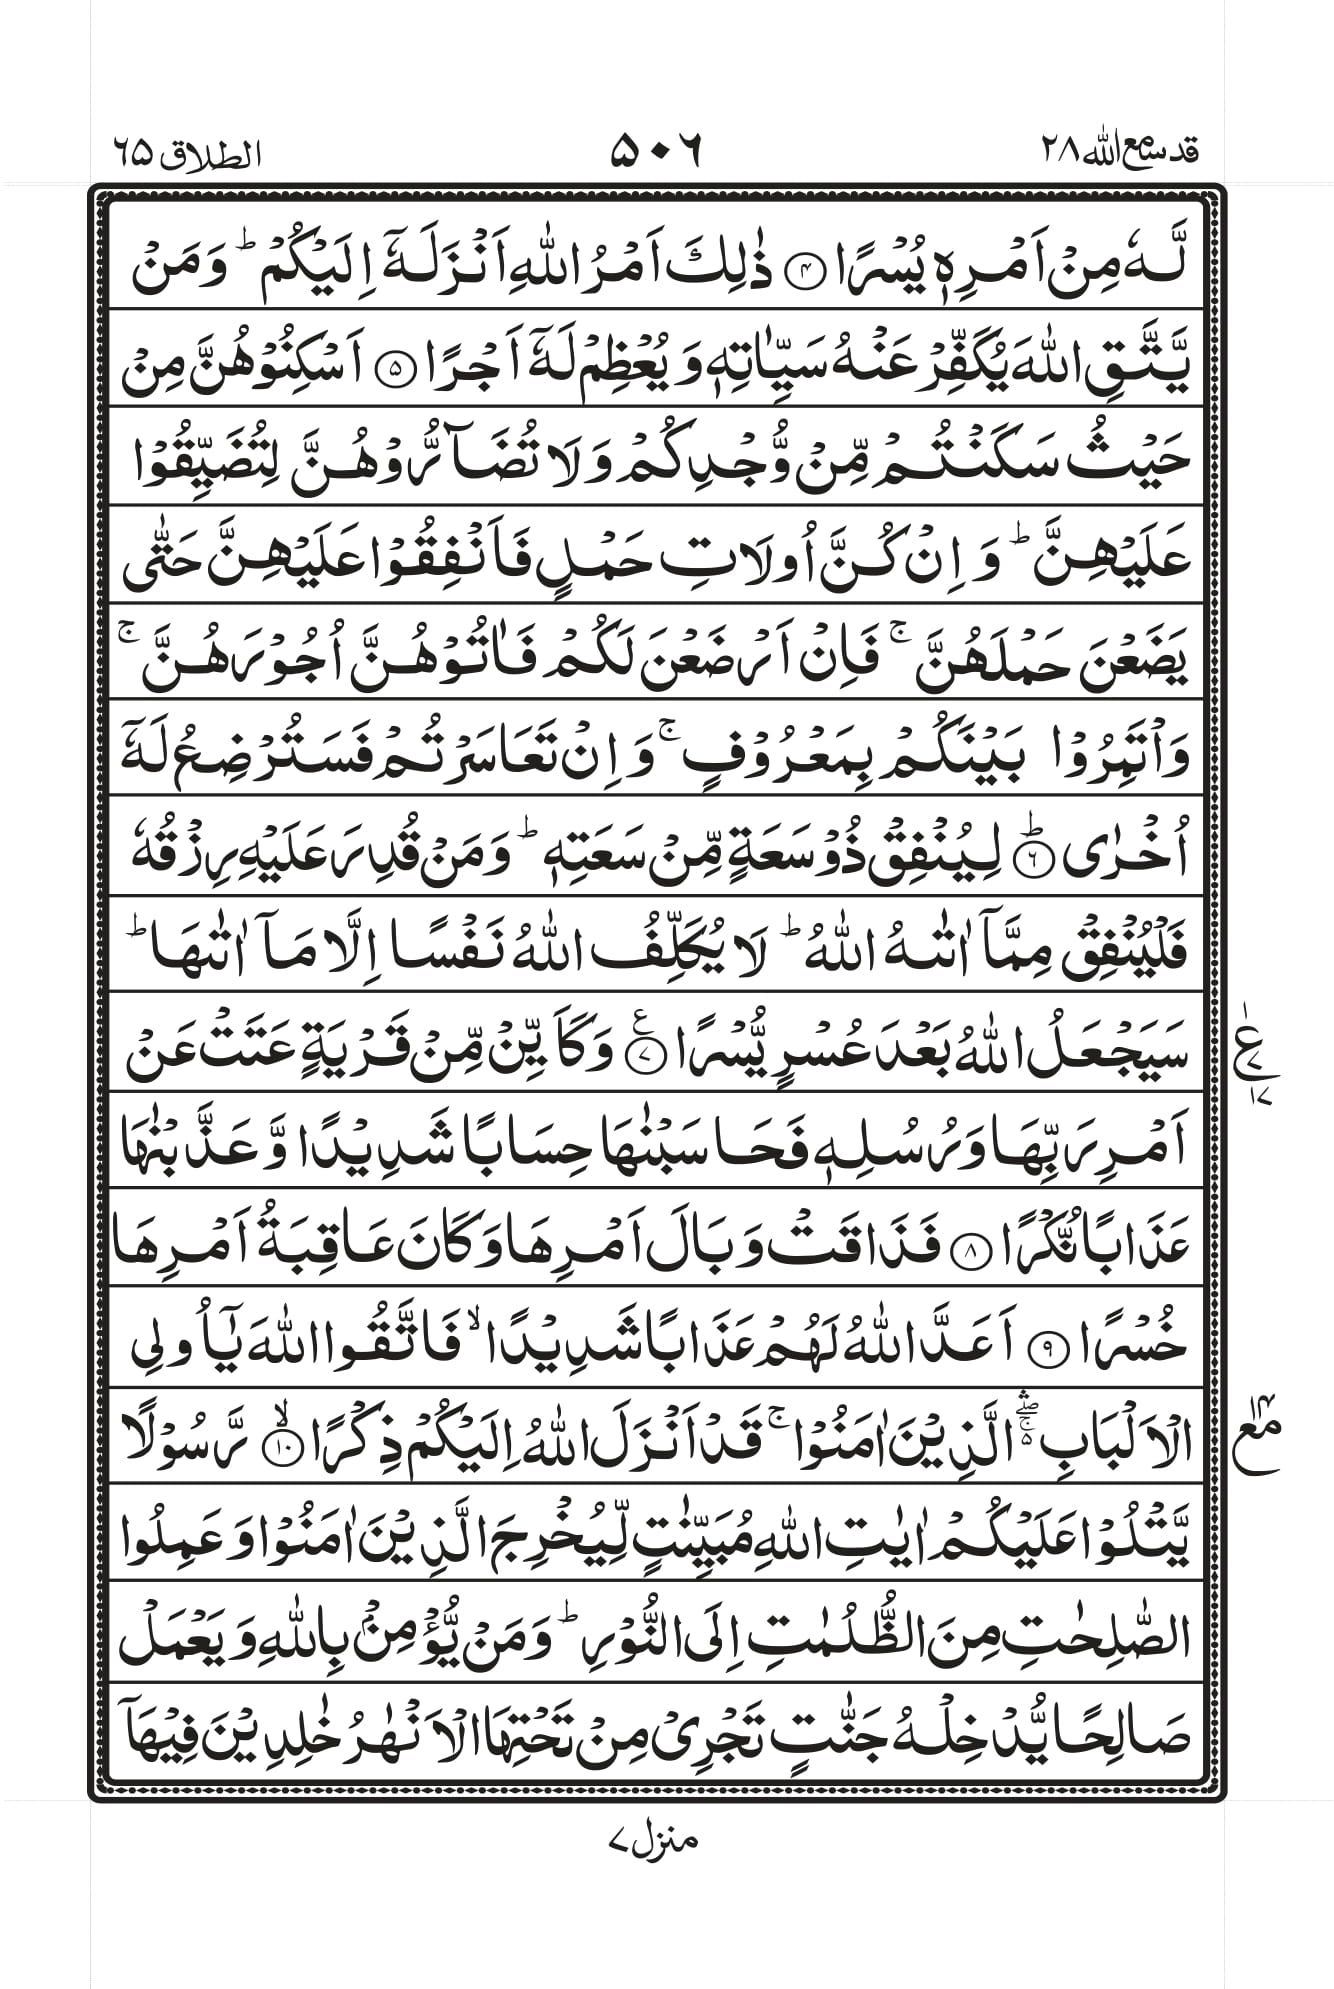 قد سمع الله ۲۸
۵۰۶
الطلاق ۶۵
لَّهٗ مِنْ اَمْرِهٖ يُسْرًا ﴿۴﴾ ذٰلِكَ اَمْرُ اللّٰهِ اَنْزَلَهٗۤ اِلَيْكُمْ ؕ وَمَنْ
يَّتَّقِ اللّٰهَ يُكَفِّرْ عَنْهُ سَيِّاٰتِهٖ وَيُعْظِمْ لَهٗۤ اَجْرًا ﴿۵﴾ اَسْكِنُوْهُنَّ مِنْ
حَيْثُ سَكَنْتُمْ مِّنْ وُّجْدِكُمْ وَلَا تُضَآرُّوْهُنَّ لِتُضَيِّقُوْا
عَلَيْهِنَّ ؕ وَاِنْ كُنَّ اُولَاتِ حَمْلٍ فَاَنْفِقُوْا عَلَيْهِنَّ حَتّٰى
يَضَعْنَ حَمْلَهُنَّ ۚ فَاِنْ اَرْضَعْنَ لَكُمْ فَاٰتُوْهُنَّ اُجُوْرَهُنَّ ۚ
وَاْتَمِرُوْا بَيْنَكُمْ بِمَعْرُوْفٍ ۚ وَاِنْ تَعَاسَرْتُمْ فَسَتُرْضِعُ لَهٗۤ
اُخْرٰى ؕ﴿۶﴾ لِيُنْفِقْ ذُوْ سَعَةٍ مِّنْ سَعَتِهٖ ؕ وَمَنْ قُدِرَ عَلَيْهِ رِزْقُهٗ
فَلْيُنْفِقْ مِمَّاۤ اٰتٰىهُ اللّٰهُ ؕ لَا يُكَلِّفُ اللّٰهُ نَفْسًا اِلَّا مَاۤ اٰتٰىهَا ؕ
سَيَجْعَلُ اللّٰهُ بَعْدَ عُسْرٍ يُّسْرًا ﴿۷﴾ع وَكَاَيِّنْ مِّنْ قَرْيَةٍ عَتَتْ عَنْ
ع ۱ ۷ ۱۷
اَمْرِ رَبِّهَا وَرُسُلِهٖ فَحَاسَبْنٰهَا حِسَابًا شَدِيْدًا وَّعَذَّبْنٰهَا
عَذَابًا نُّكْرًا ﴿۸﴾ فَذَاقَتْ وَبَالَ اَمْرِهَا وَكَانَ عَاقِبَةُ اَمْرِهَا
خُسْرًا ﴿۹﴾ اَعَدَّ اللّٰهُ لَهُمْ عَذَابًا شَدِيْدًا ۙ فَاتَّقُوا اللّٰهَ يٰۤاُولِي
الْاَلْبَابِ ۛۖۚ۬ الَّذِيْنَ اٰمَنُوْا ۚ قَدْ اَنْزَلَ اللّٰهُ اِلَيْكُمْ ذِكْرًا ۙ﴿۱۰﴾ رَّسُوْلًا
مع ۱۴
يَّتْلُوْا عَلَيْكُمْ اٰيٰتِ اللّٰهِ مُبَيِّنٰتٍ لِّيُخْرِجَ الَّذِيْنَ اٰمَنُوْا وَعَمِلُوا
الصّٰلِحٰتِ مِنَ الظُّلُمٰتِ اِلَى النُّوْرِ ؕ وَمَنْ يُّؤْمِنْۢ بِاللّٰهِ وَيَعْمَلْ
صَالِحًا يُّدْخِلْهُ جَنّٰتٍ تَجْرِيْ مِنْ تَحْتِهَا الْاَنْهٰرُ خٰلِدِيْنَ فِيْهَاۤ
منزل ۷